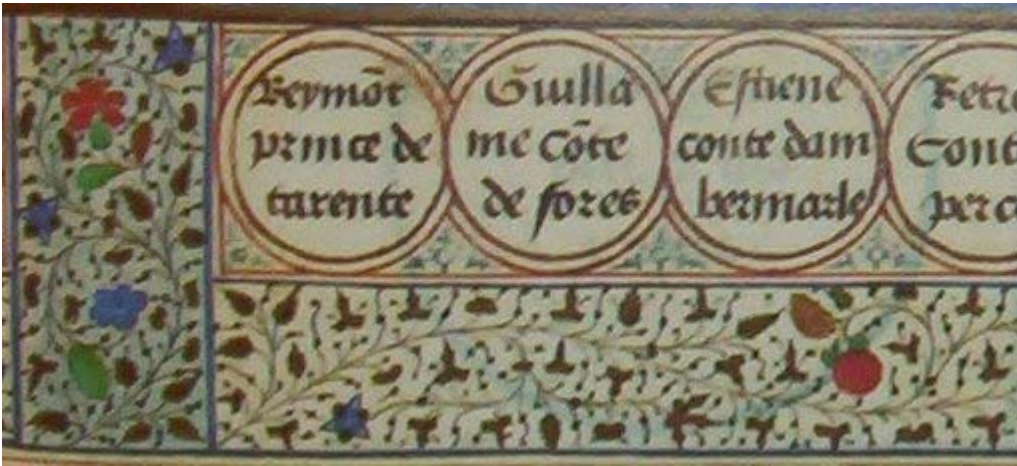 Beymōt
prince de
tarente
Guilla
me Cōte
de fores
Estiene
conte dam
bermarle
Retro
Cont
perc